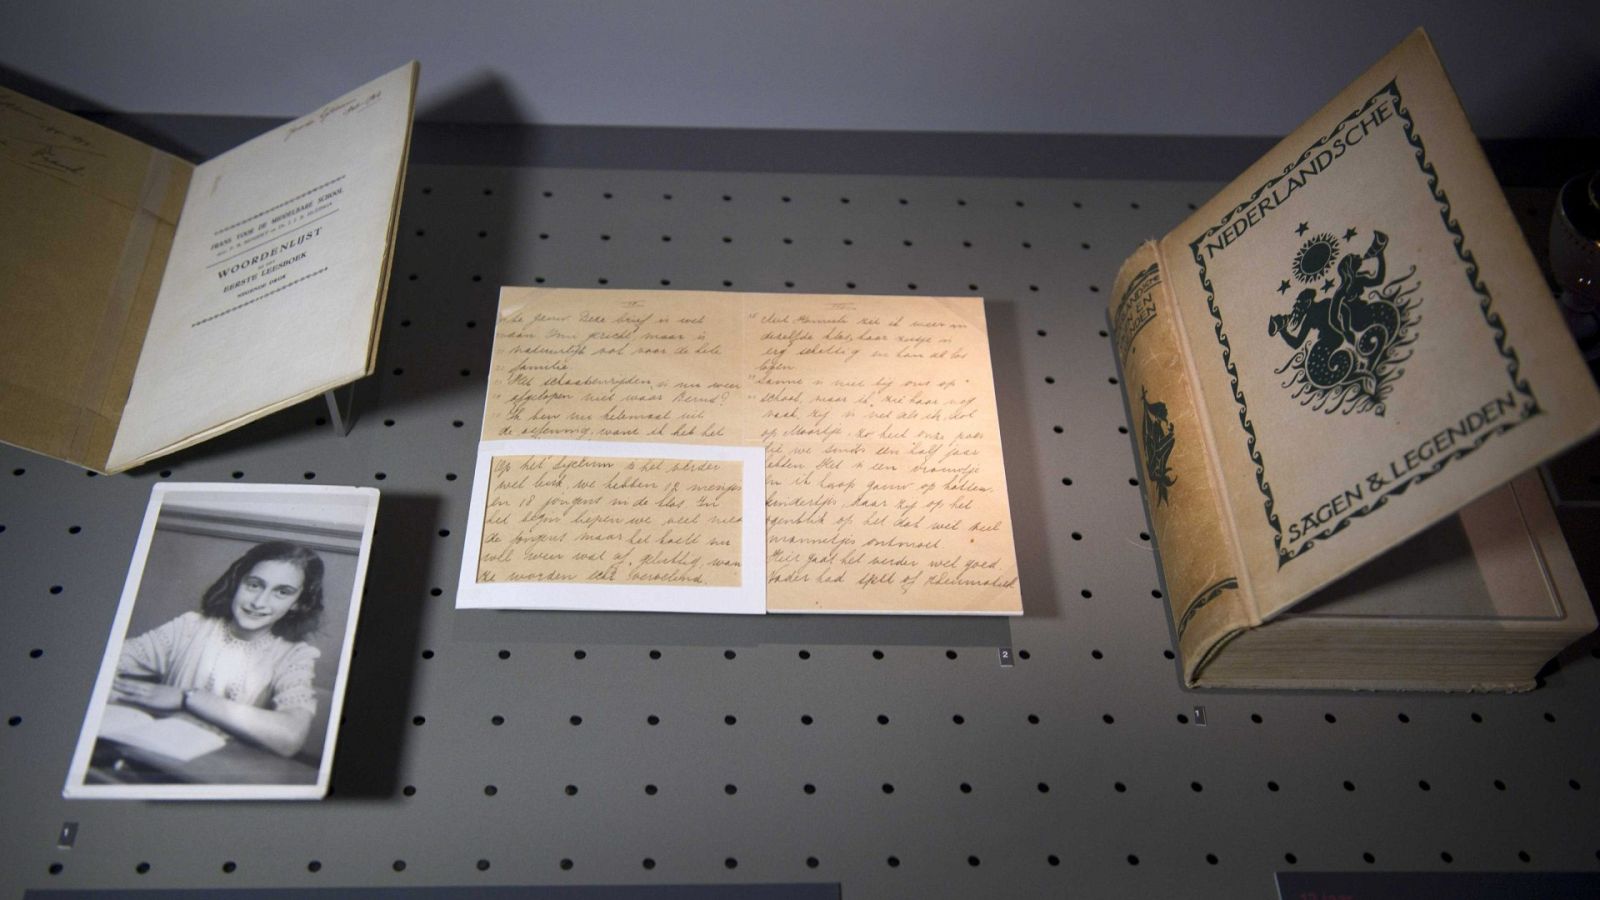 FRANS VOOR DE MIDDELBARE SCHOOL
WOORDENLIJST
EERSTE LEESBOEK
NEGENDE DRUK
Deze brief is wel
maar is
natuurlijk ook voor de hele
familie.
Het schaatsenrijden is nu weer
afgelopen niet waar Bernd?
Ik ben nu helemaal uit
de oefening, want ik heb het
Op het Lyceum is het verder
wel leuk, we hebben 12 meisjes
en 18 jongens in de klas. In
het begin liepen we veel met
de jongens maar het koelt nu
wel weer wat af, gelukkig, want
ze worden echt vervelend.
Met Hanneli zit ik weer in
dezelfde klas, haar zusje is
erg schattig en kan al los
lopen
Sanne is niet bij ons op
school, maar ik zie haar nog
vaak, zij is net als ik dol
op Moortje. Zo heet onze poes
die we sinds een half jaar
hebben Het is een vrouwtje
en ik hoop gauw op katten-
kindertjes, daar zij op het
ogenblik op het dak veel
mannetjes ontmoet.
Hier gaat het verder wel goed.
Vader had spit of Rheumatiek
2
NEDERLANDSCHE
SAGEN & LEGENDEN
1
1